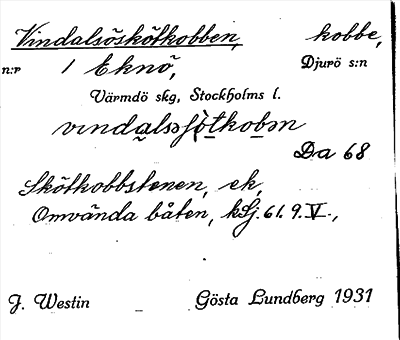 Vindalsöskötkobben, kobbe,
n:r 1 Eknö, Djurö s:n
Värmdö skg, Stockholms l.
Da 68
Skötkobbstenen, ek,
Omvända båten, kSj. 61. 9. V.,
J. Westin Gösta Lundberg 1931